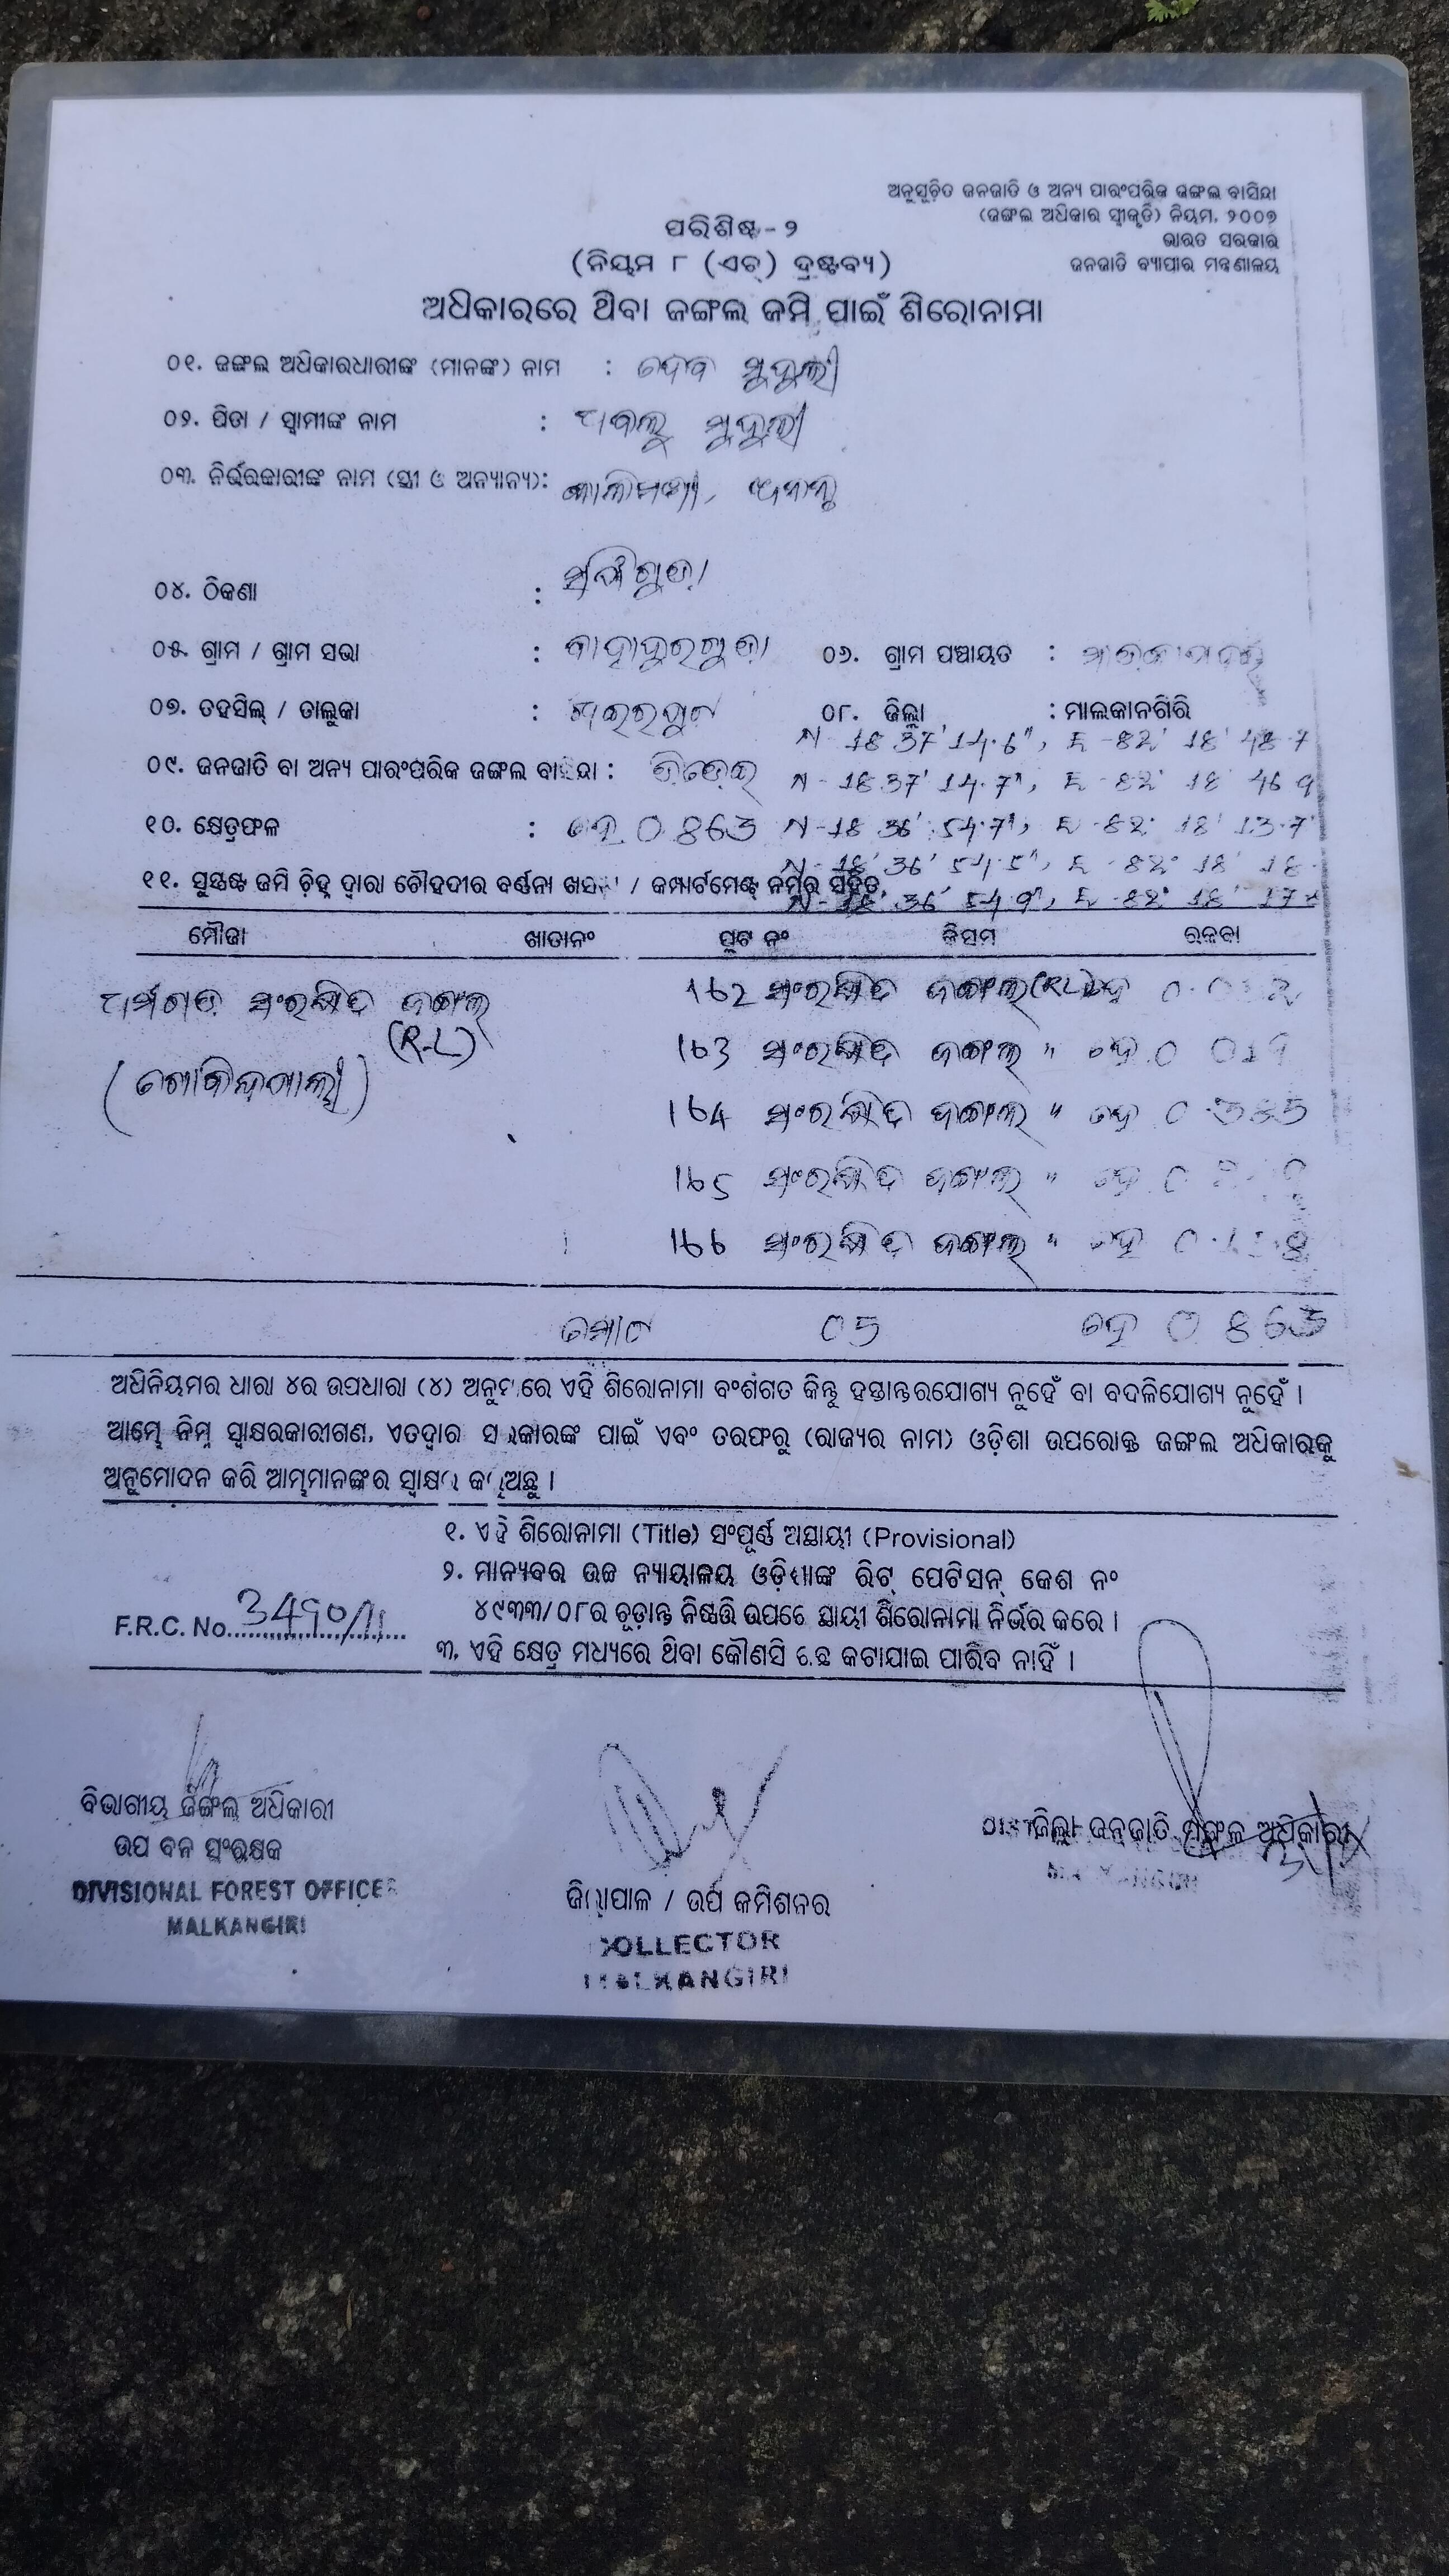 ଅନୁସୂଚିତ ଜନଜାତି ଓ ଅନ୍ୟ ପାରଂପରିକ ଜଙ୍ଗଲ ବାସିନ୍ଦା
(ଜଙ୍ଗଲ ଅଧିକାର ସ୍ୱୀକୃତି) ନିୟମ, ୨୦୦୭
ଭାରତ ସରକାର
ଜନଜାତି ବ୍ୟାପାର ମନ୍ତ୍ରଣାଳୟ
ପରିଶିଷ୍ଟ - ୨
(ନିୟମ ୮ (ଏଚ୍) ଦ୍ରଷ୍ଟବ୍ୟ)
ଅଧିକାରରେ ଥିବା ଜଙ୍ଗଲ ଜମି ପାଇଁ ଶିରୋନାମା
୦୧. ଜଙ୍ଗଲ ଅଧିକାରଧାରୀଙ୍କ (ମାନଙ୍କ) ନାମ : ଦେବ ମୁଦୁଲୀ
୦୨. ପିତା / ସ୍ୱାମୀଙ୍କ ନାମ : ମୁଦୁଲୀ
୦୩. ନିର୍ଭରକାରୀଙ୍କ ନାମ (ସ୍ତ୍ରୀ ଓ ଅନ୍ୟାନ୍ୟ) :
୦୪. ଠିକଣା :
୦୫. ଗ୍ରାମ / ଗ୍ରାମ ସଭା : ବାହାଦୁରଗୁଡ଼ା ୦୬. ଗ୍ରାମ ପଞ୍ଚାୟତ :
୦୭. ତହସିଲ୍ / ତାଲୁକା : ୦୮. ଜିଲ୍ଲା : ମାଲକାନଗିରି
N - 18 37' 14.6", E - 82° 18' 48.7
୦୯. ଜନଜାତି ବା ଅନ୍ୟ ପାରଂପରିକ ଜଙ୍ଗଲ ବାସିନ୍ଦା :
N - 18 37' 14.7", E - 82° 18' 46 9
୧୦. କ୍ଷେତ୍ରଫଳ : ହେ 0 863 N - 18 36' 54.7", E - 82° 18' 13.7"
N - 18° 36' 54.5", E - 82° 18' 18
୧୧. ସୁସ୍ପଷ୍ଟ ଜମି ଚିହ୍ନ ଦ୍ୱାରା ଚୌହଦୀର ବର୍ଣ୍ଣନା / କମ୍ପାର୍ଟମେଣ୍ଟ୍ ନମ୍ବର ସହିତ
N - 18° 36' 54.9", E - 82° 18' 17
ମୌଜା ଖାତାନଂ ପ୍ଲଟ ନଂ କିସମ ରକବା
ସଂରକ୍ଷିତ ଜଙ୍ଗଲ 162 ସଂରକ୍ଷିତ ଜଙ୍ଗଲ (RL) ହେ
(R-L) 163 ସଂରକ୍ଷିତ ଜଙ୍ଗଲ " ହେ
(ଗୋବିନ୍ଦପାଲୀ) 164 ସଂରକ୍ଷିତ ଜଙ୍ଗଲ " ହେ
165 ସଂରକ୍ଷିତ ଜଙ୍ଗଲ " ହେ
166 ସଂରକ୍ଷିତ ଜଙ୍ଗଲ " ହେ
ମୋଟ 05 ହେ 0 863
ଅଧିନିୟମର ଧାରା ୪ର ଉପଧାରା (୪) ଅନୁସାରେ ଏହି ଶିରୋନାମା ବଂଶଗତ କିନ୍ତୁ ହସ୍ତାନ୍ତରଯୋଗ୍ୟ ନୁହେଁ ବା ବଦଳିଯୋଗ୍ୟ ନୁହେଁ ।
ଆମ୍ଭେ ନିମ୍ନ ସ୍ୱାକ୍ଷରକାରୀଗଣ, ଏତଦ୍ୱାରା ସରକାରଙ୍କ ପାଇଁ ଏବଂ ତରଫରୁ (ରାଜ୍ୟର ନାମ) ଓଡ଼ିଶା ଉପରୋକ୍ତ ଜଙ୍ଗଲ ଅଧିକାରକୁ
ଅନୁମୋଦନ କରି ଆମ୍ଭମାନଙ୍କର ସ୍ୱାକ୍ଷର କରୁଅଛୁ ।
୧. ଏହି ଶିରୋନାମା (Title) ସଂପୂର୍ଣ୍ଣ ଅସ୍ଥାୟୀ (Provisional)
୨. ମାନ୍ୟବର ଉଚ୍ଚ ନ୍ୟାୟାଳୟ ଓଡ଼ିଶାଙ୍କ ରିଟ୍ ପେଟିସନ୍ କେଶ ନଂ
୪୯୩୩/୦୮ର ଚୂଡ଼ାନ୍ତ ନିଷ୍ପତ୍ତି ଉପରେ ସ୍ଥାୟୀ ଶିରୋନାମା ନିର୍ଭର କରେ ।
F.R.C. No. 3490/11
୩. ଏହି କ୍ଷେତ୍ର ମଧ୍ୟରେ ଥିବା କୌଣସି ଗଛ କଟାଯାଇ ପାରିବ ନାହିଁ ।
ବିଭାଗୀୟ ଜଙ୍ଗଲ ଅଧିକାରୀ
ଉପ ବନ ସଂରକ୍ଷକ
DIVISIONAL FOREST OFFICER
MALKANGIRI
ଜିଲ୍ଲାପାଳ / ଉପ କମିଶନର
COLLECTOR
MALKANGIRI
ଜିଲ୍ଲା ଜନଜାତି ମଙ୍ଗଳ ଅଧିକାରୀ
MALKANGIRI